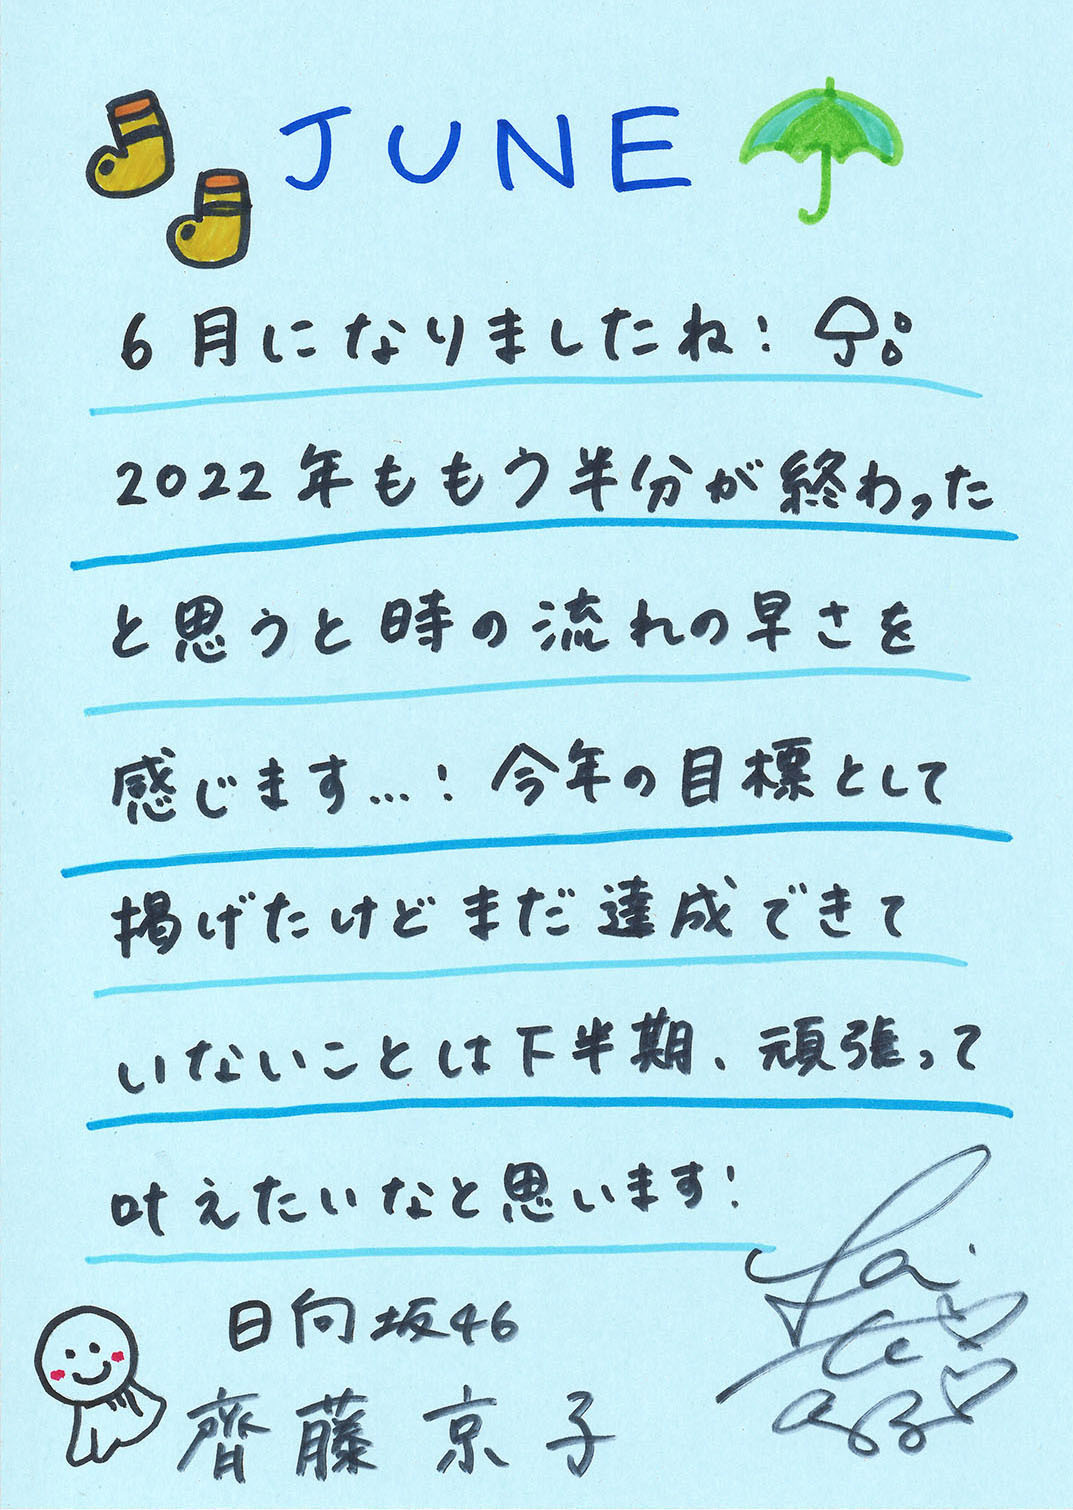 JUNE
6月になりましたね!
2022年ももう半分が終わった
と思うと時の流れの早さを
感じます…! 今年の目標として
掲げたけどまだ達成できて
いないことは下半期、頑張って
叶えたいなと思います!
日向坂46
齊藤京子